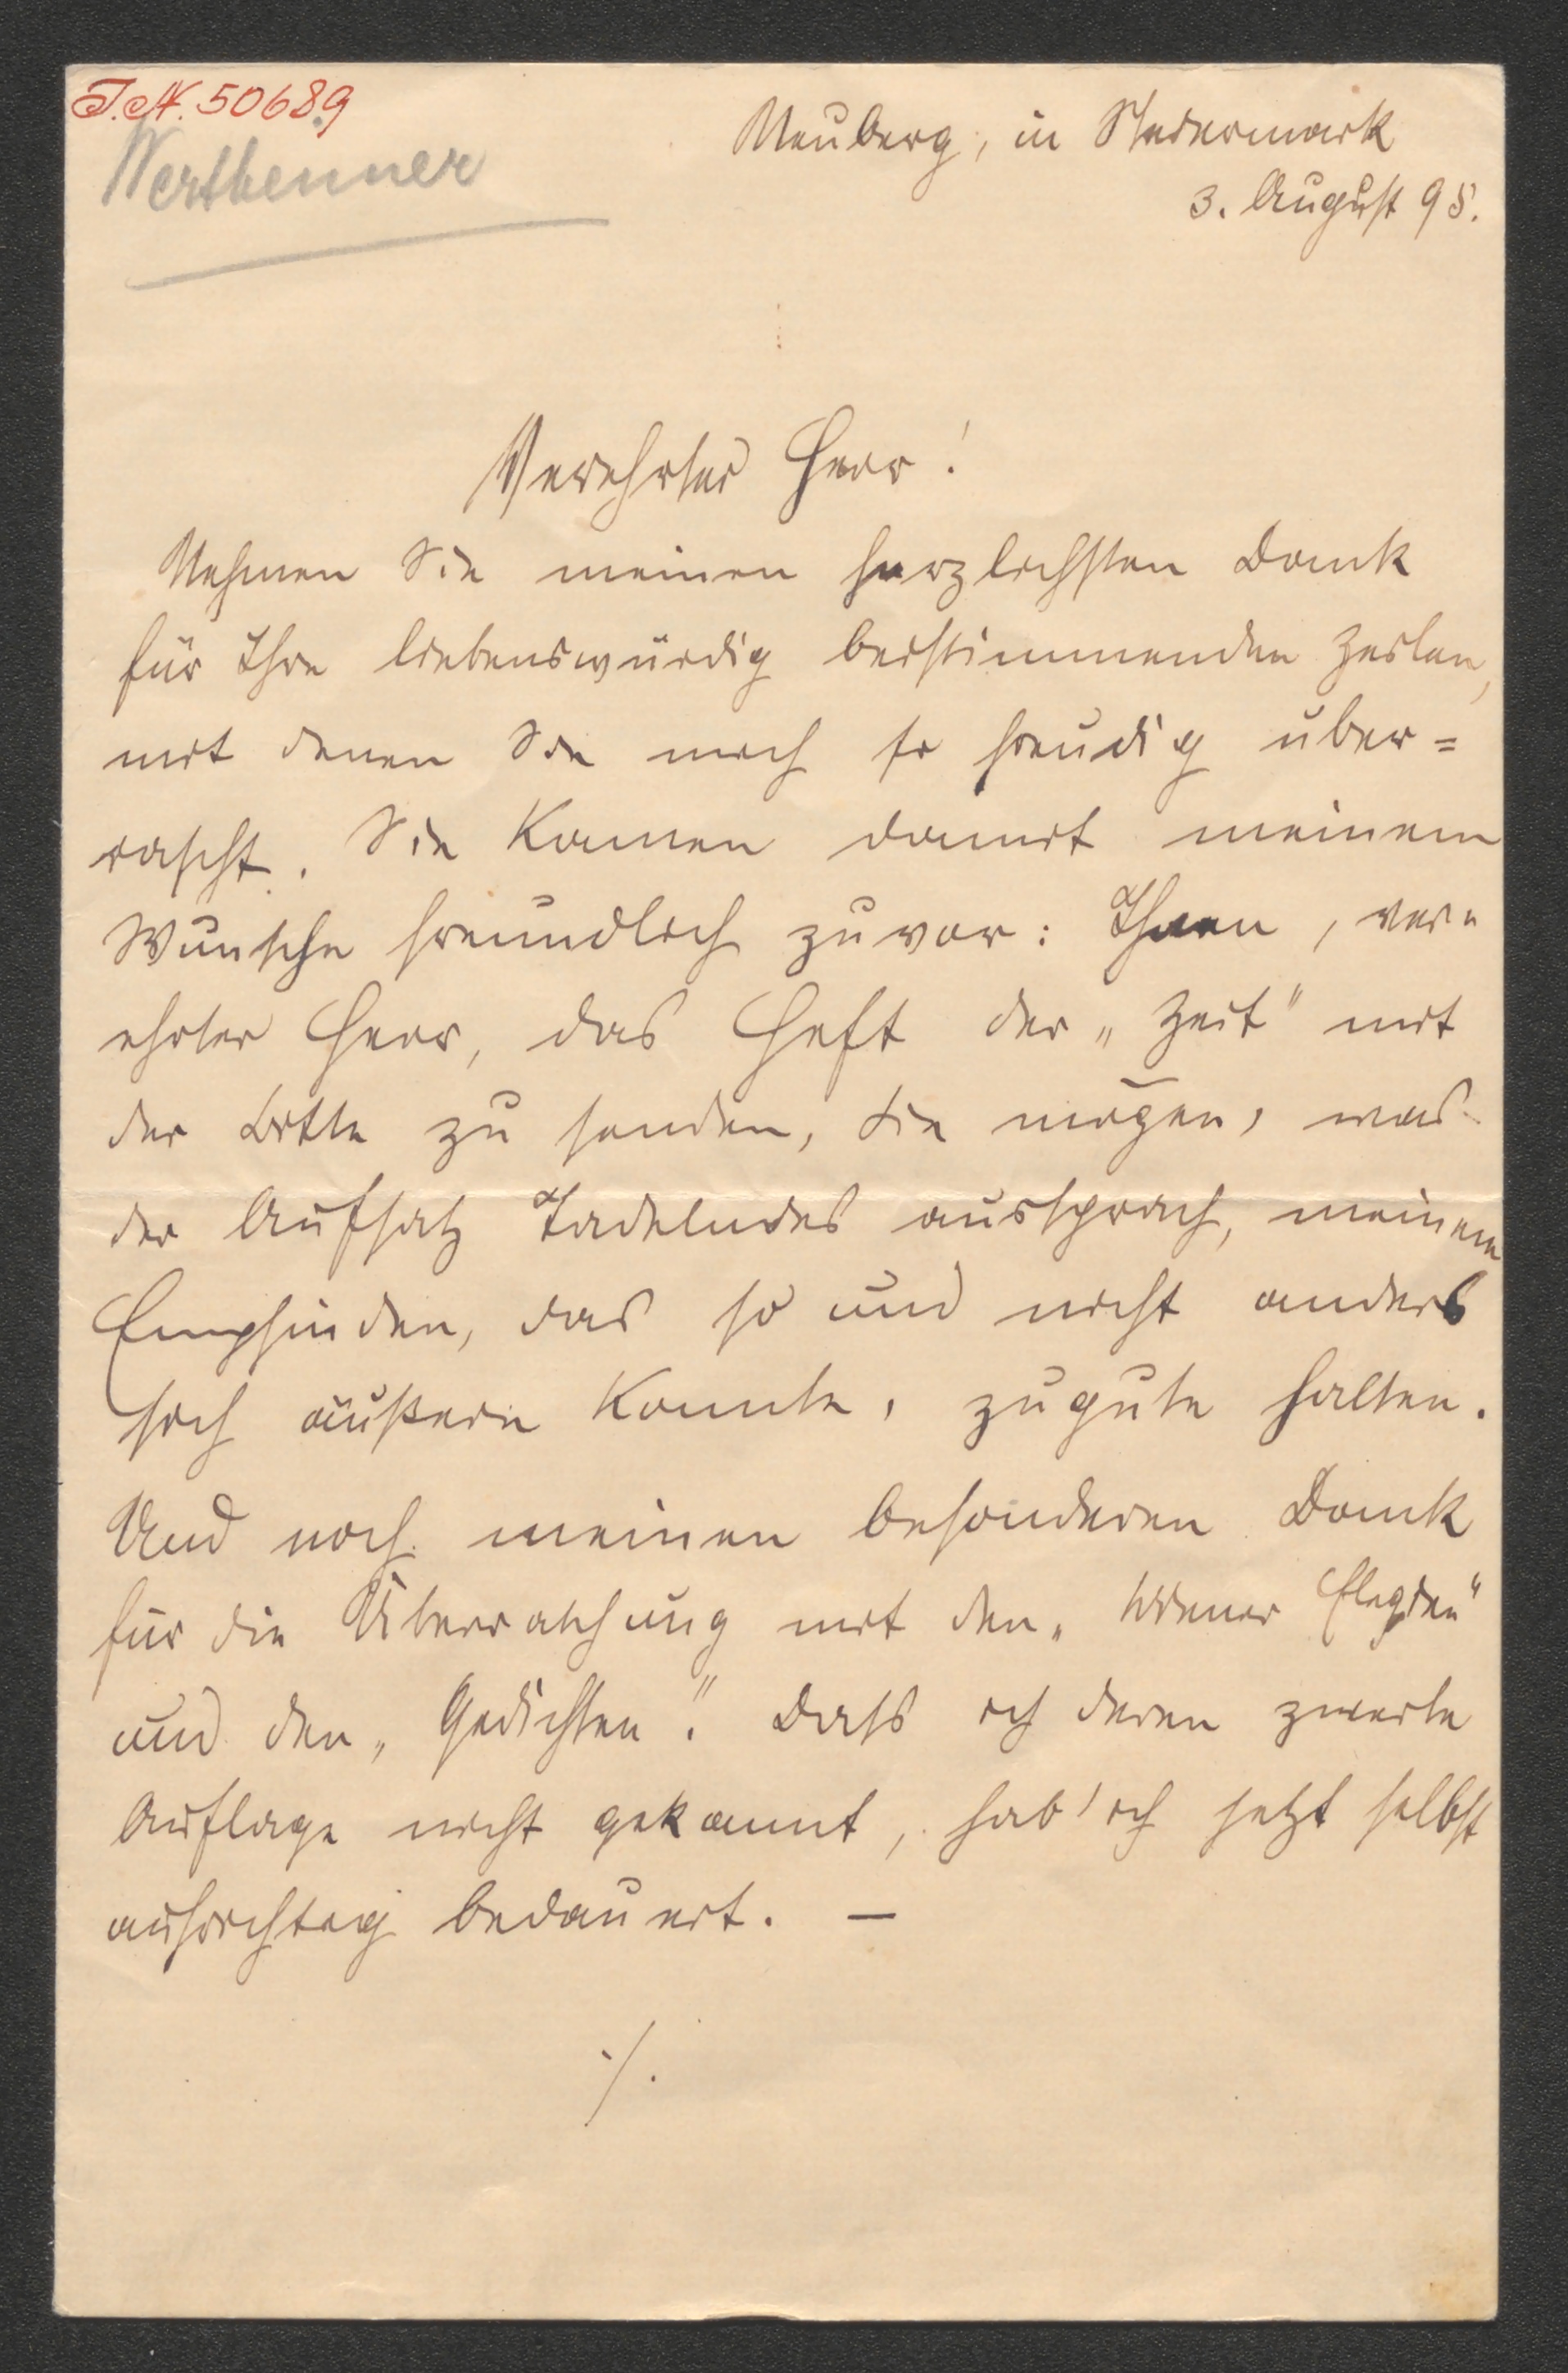 I.N. 50689
Wertheimer
Neuberg, in Steiermark
3. August 95.
Verehrter Herr!
Nehmen Sie meinen herzlichsten Dank
für Ihre liebenswürdig beistimmenden Zeilen,
mit denen Sie mich so freudig über=
rascht. Sie kamen damit meinem
Wunsche freundlich zuvor: Ihnen, ver=
ehrter Herr, das Heft der „Zeit" mit
der Bitte zu senden, Sie mögen, was
der Aufsatz Tadelndes aussprach, meinem
Empfinden, das so und nicht anders
sich äußern konnte, zugute halten.
Und noch meinen besonderen Dank
für die Überraschung mit den „Wiener Elegien"
und den „Gedichten". Dass ich deren zweite
Auflage nicht gekannt, hab' ich jetzt selbst
aufrichtig bedauert. —
./.